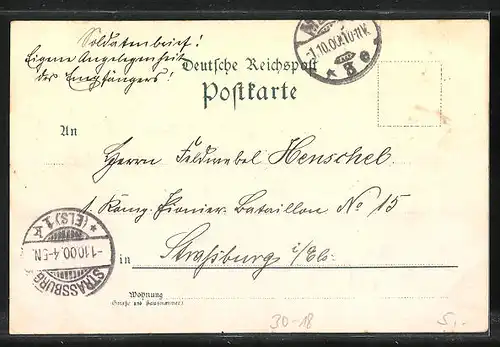 Soldatenbrief!
Eigene Angelegenheit
des Empfängers!
Deutsche Reichspost
Postkarte
1.10.00.10-11V.
* 8 e *
An
Herrn Feldwebel Henschel.
1 Königl. Pionier-Bataillon No 15
in Straßburg i/Els.
STRASSBURG
-1.10.00.4-5N.
* (ELS) 1 k
Wohnung
(Straße und Hausnummer)
30-18
5,-